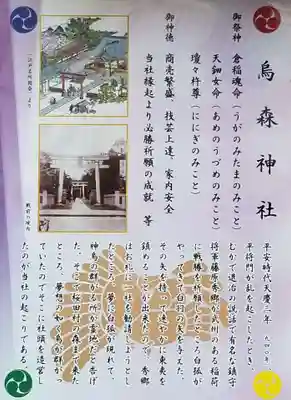 烏森神社
御祭神
倉稲魂命(うがのみたまのみこと)
天鈿女命(あめのうづめのみこと)
瓊々杵尊(ににぎのみこと)
御神徳
商売繁盛、技芸上達、家内安全
当社縁起より必勝祈願の成就 等
「江戸名所図会」より
戦前の境内
平安時代天慶三年(九四〇)、
平将門が乱を起こしたとき、
むかで退治の説話で有名な鎮守
将軍藤原秀郷が武州のある稲荷
に戦勝を願ったところ白狐が
やってきて白羽の矢を与えた。
その矢を持って速やかに東夷を
鎮めることが出来たので、秀郷
はお礼に一社を勧請しようとし
たところ、夢に白狐が現れて、
神鳥の群がる所が霊地だと告げ
た。そこで桜田村の森まで来た
ところ、夢想のごとく烏が群がっ
ていたのでそこに社頭を造営し
たのが当社の起こりである。